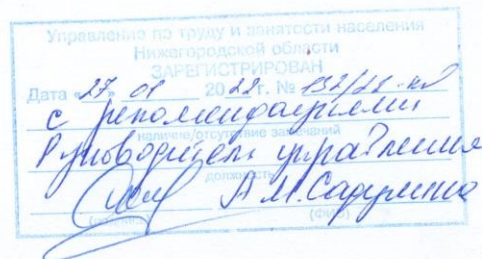 Управление по труду и занятости населения
Нижегородской области
ЗАРЕГИСТРИРОВАН
Дата «27» 01 2022г. №
с рекомендациями
наличие/отсутствие замечаний
Руководитель управления
должность
А.М.
(подпись) (ФИО)